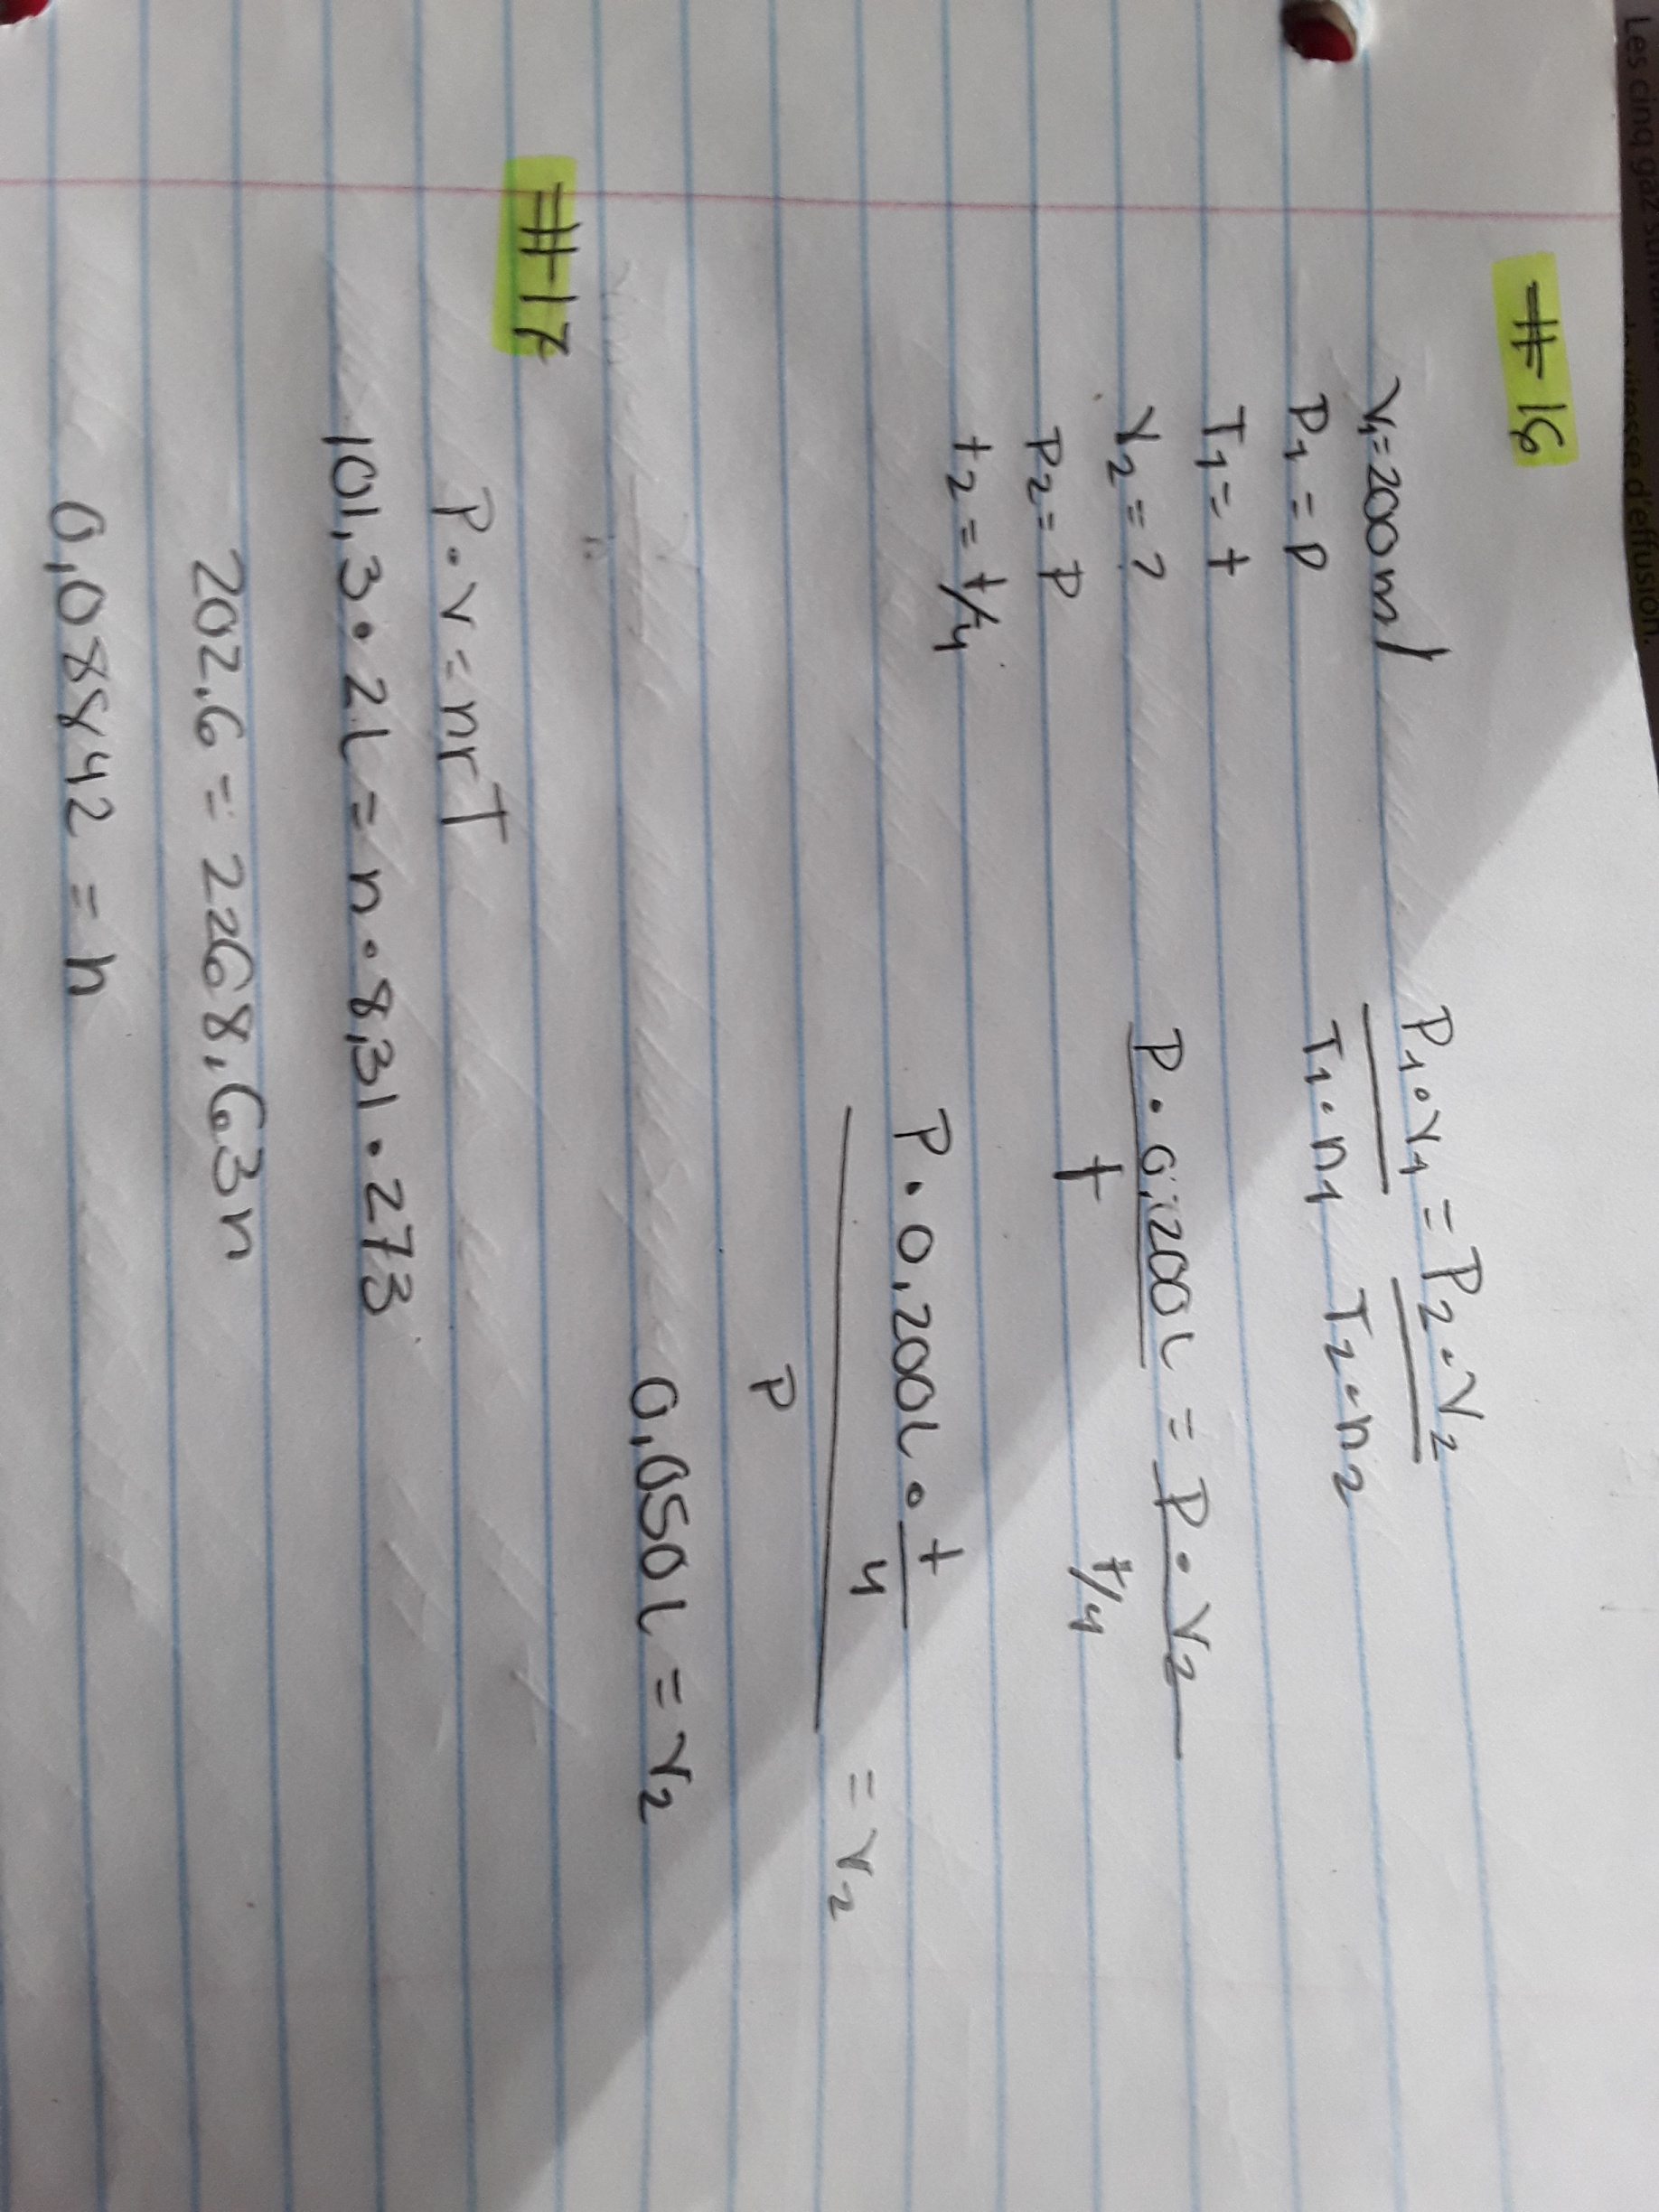 Les cinq gaz d'effusion.
#16
V₁=200ml
P₁ = P
T₁ = t
V₂ = ?
P₂ = P
t₂ = t/4
P₁•V₁ = P₂•V₂
T₁•n₁ T₂•n₂
P•0,200L = P•V₂
t t/4
P•0,200L•t
4
= V₂
P
0,050L = V₂
#17
P•V=nrT
101,3•2L=n•8,31•273
202.6 = 2268,63n
0,08842 = n